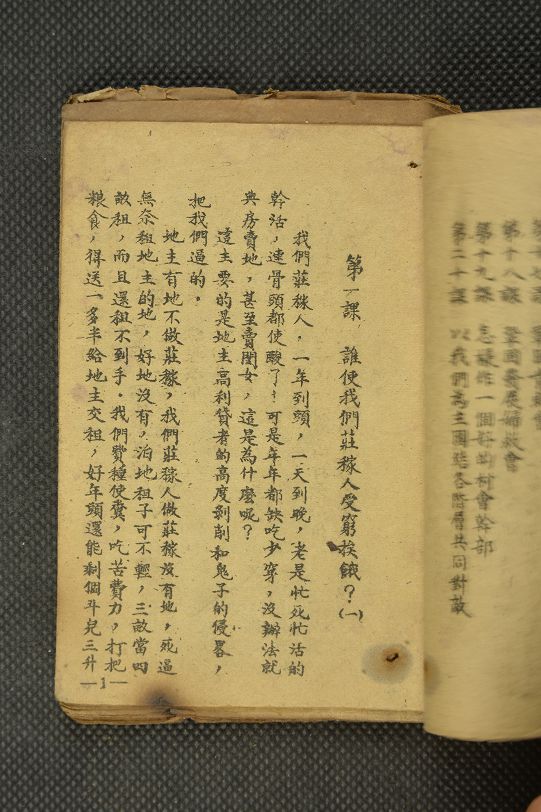 第十八課 鞏固發展婦救會
第十九課 怎樣作一個好的村會幹部
第二十課 以我們為主團結各階層共同對敵
第一課 誰使我們莊稼人受窮挨餓？(一)
我們莊稼人，一年到頭，一天到晚，老是忙死忙活的
幹活，連骨頭都使酸了！可是年年都缺吃少穿，沒辦法就
典房賣地，甚至賣閨女，這是為什麼呢？
這主要的是地主高利貸者的高度剝削和鬼子的侵畧，
把我們逼的。
地主有地不做莊稼，我們莊稼人做莊稼沒有地，死逼
無奈租地主的地，好地沒有，泊地租子可不輕，三畝當四
畝租，而且還租不到手。我們費種使糞，吃苦費力，打把
粮食，得送一多半給地主交租，好年頭還能剩個斗兒三升
—1—